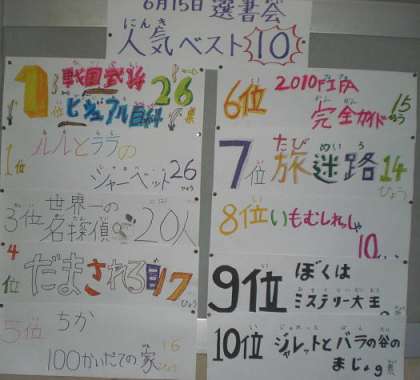 6月15日 選書会
にんき
人気ベスト10
1位 戦国武将
ビジュアル百科 26票
1位 ルルとララの
シャーベット 26
ひょう
3位 世界一の
名探偵 20人
4位 だまされる目 17
ひょう
5位 ちか
100かいだての家 16
ひょう
6位 2010FIFA
完全ガイド 15
ひょう
たび めいろ
7位 旅迷路 14
ひょう
8位 いもむしれっしゃ
10
9位 ぼくは
ミステリー大王
10位 ジャレットとバラの谷の
まじょ 9票